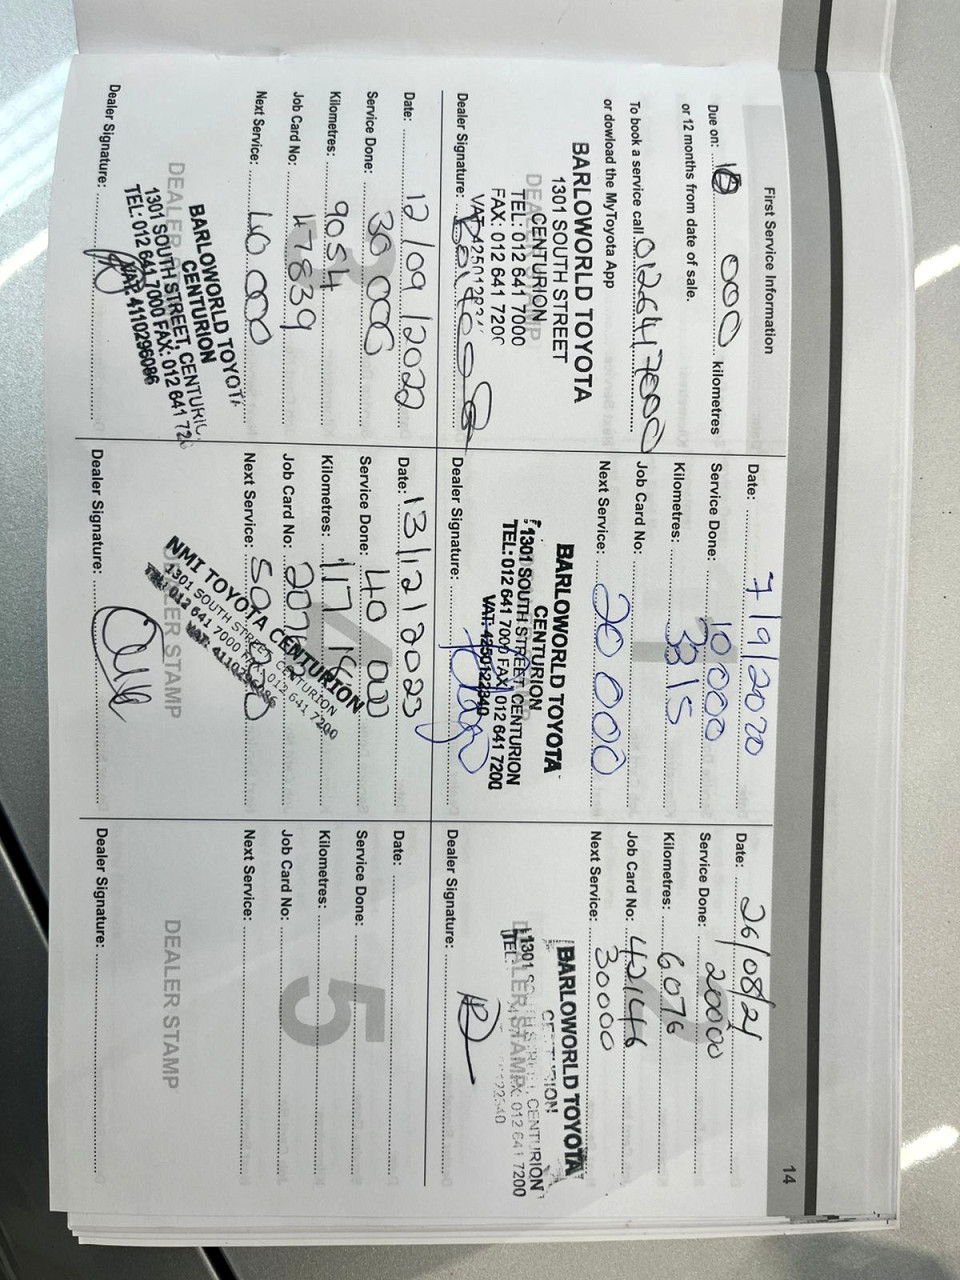 First Service Information
14
Due on: 10 000 kilometres
or 12 months from date of sale.
To book a service call 0126417000
or dowload the MyToyota App
BARLOWORLD TOYOTA
1301 SOUTH STREET
CENTURION
DEALER STAMP
TEL: 012 641 7000
FAX: 012 641 720
Dealer Signature:
Date: 7/9/2020
Service Done: 10 000
Kilometres: 3315
Job Card No:
Next Service: 20 000
BARLOWORLD TOYOTA
CENTURION
1301 SOUTH STREET, CENTURION
TEL: 012 641 7000 FAX: 012 641 7200
VAT: 4250122340
Dealer Signature:
Date: 26/08/21
Service Done: 20000
Kilometres: 6076
Job Card No: 42146
Next Service: 30000
BARLOWORLD TOYOTA
CENTURION
1301 SOUTH STREET, CENTURION
DEALER STAMP
TEL: 012 641 7200
Dealer Signature:
Date: 12/09/2022
Service Done: 30 000
Kilometres: 9054
Job Card No: 47839
Next Service: 40 000
DEALER
BARLOWORLD TOYOTA
CENTURION
1301 SOUTH STREET, CENTURI
TEL: 012 641 7000 FAX: 012 641 720
VAT: 4110296086
Dealer Signature:
Date: 13/12/2023
Service Done: 40 000
Kilometres: 11718
Job Card No:
Next Service:
DEALER STAMP
NMI TOYOTA CENTURION
1301 SOUTH STREET CENTURION
TEL: 012 641 7000 FAX: 012 641 7200
VAT: 4110296086
Dealer Signature:
5
Date:
Service Done:
Kilometres:
Job Card No:
Next Service:
DEALER STAMP
Dealer Signature: